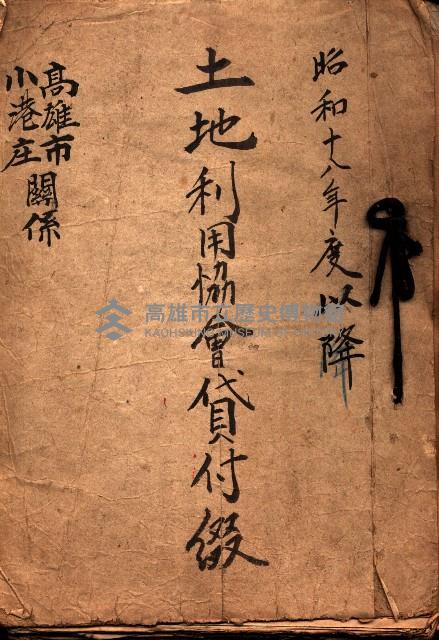 昭和十八年度以降
土地利用協會貸付綴
高雄市
小港庄
關係
高雄市立歷史博物館
KAOHSIUNG MUSEUM OF HISTORY